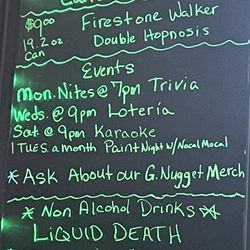 $9.00
Firestone Walker
19.2oz
Can
Double Hopnosis
Events
Mon. Nites @ 7pm Trivia
Weds. @ 9pm Loteria
Sat @ 9pm Karaoke
1 TUES. a month Paint Night w/ Nacal Mocal
* Ask About our G. Nugget Merch
* Non Alcohol Drinks *
LiQUID DEATH